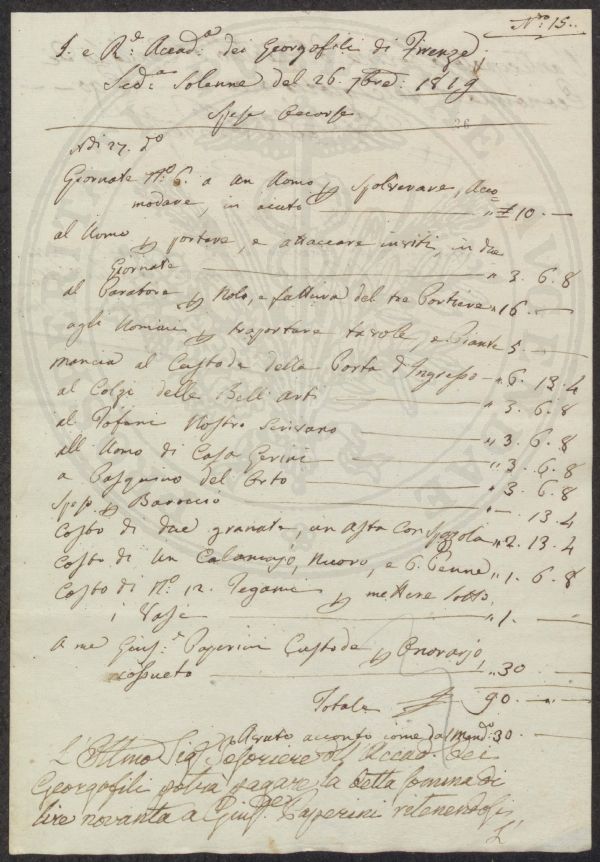 N.° 15.
I. e R.e Accad.a dei Georgofili di Firenze
Sed.a Solenne del 26. 7bre: 1819
Spese Occorse
Adì 27. d.o
Giornate N.° 6. a un Uomo p spolverare, Acco=
modare, in aiuto " £ 10. —
al Uomo p portare, e attaccare inviti, in due
Giornate " 3. 6. 8
al Paratore p Nolo, e fattura del tre Portiere " 16. —
agli Uomini p traportare tavole, e Piante 5. —
Mancia al Custode della Porta d'Ingresso " 6. 13. 4
al Colzi delle Bell'Arti " 3. 6. 8
al Tofani Nostro Scrivano " 3. 6. 8
all Uomo di Casa Gerini " 3. 6. 8
a Pasquino del Orto " 3. 6. 8
Spese p Baroccio " 13. 4
Costo di due granate, un Asta con Spazzola " 2. 13. 4
Costo di un Calamajo, Nuovo, e 6. Penne " 1. 6. 8
Costo di N.° 12. Tegami p mettere sotto
i Vasi " 1. —
A me Gius.e Paperini Custode p Onorario,
consueto " 30 —
Totale £ 90 —
Avuto acconto come da Mand.o 30 —
L'Ill.mo Sig.r Tesoriere dell'Accad. dei
Georgofili potrà pagare la detta somma di
lire novanta a Giuseppe Paperini ritenendosi
L'